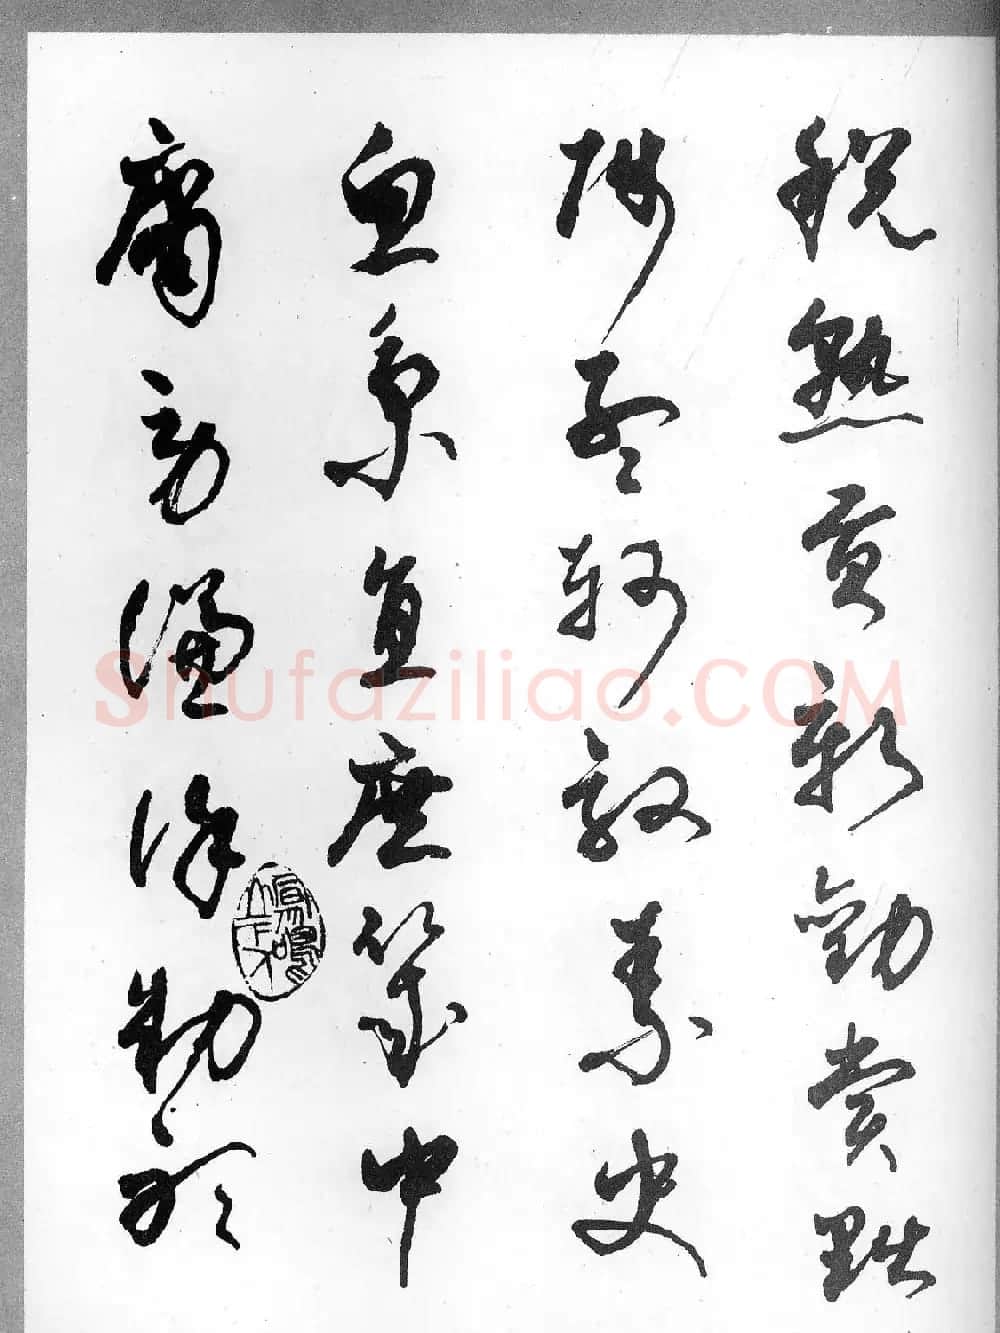 稅熟貢新勸賞黜
陟孟軻敦素史
魚秉直庶幾中
庸勞謙謹敕聆
Shufaziliao.COM